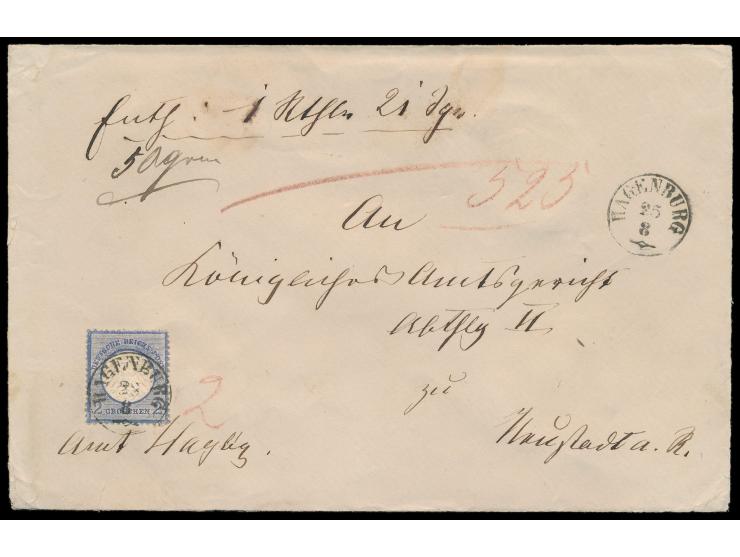 Enth: 1 Rthlr 21 Sgr.
50 grm
525
HAGENBURG
25
8
An
Königliches Amtsgericht
Abthlg II
zu
Neustadt a. R.
DEUTSCHE REICHS-POST
2 GROSCHEN 2
HAGENBURG
8
2
Amt Hagbg.